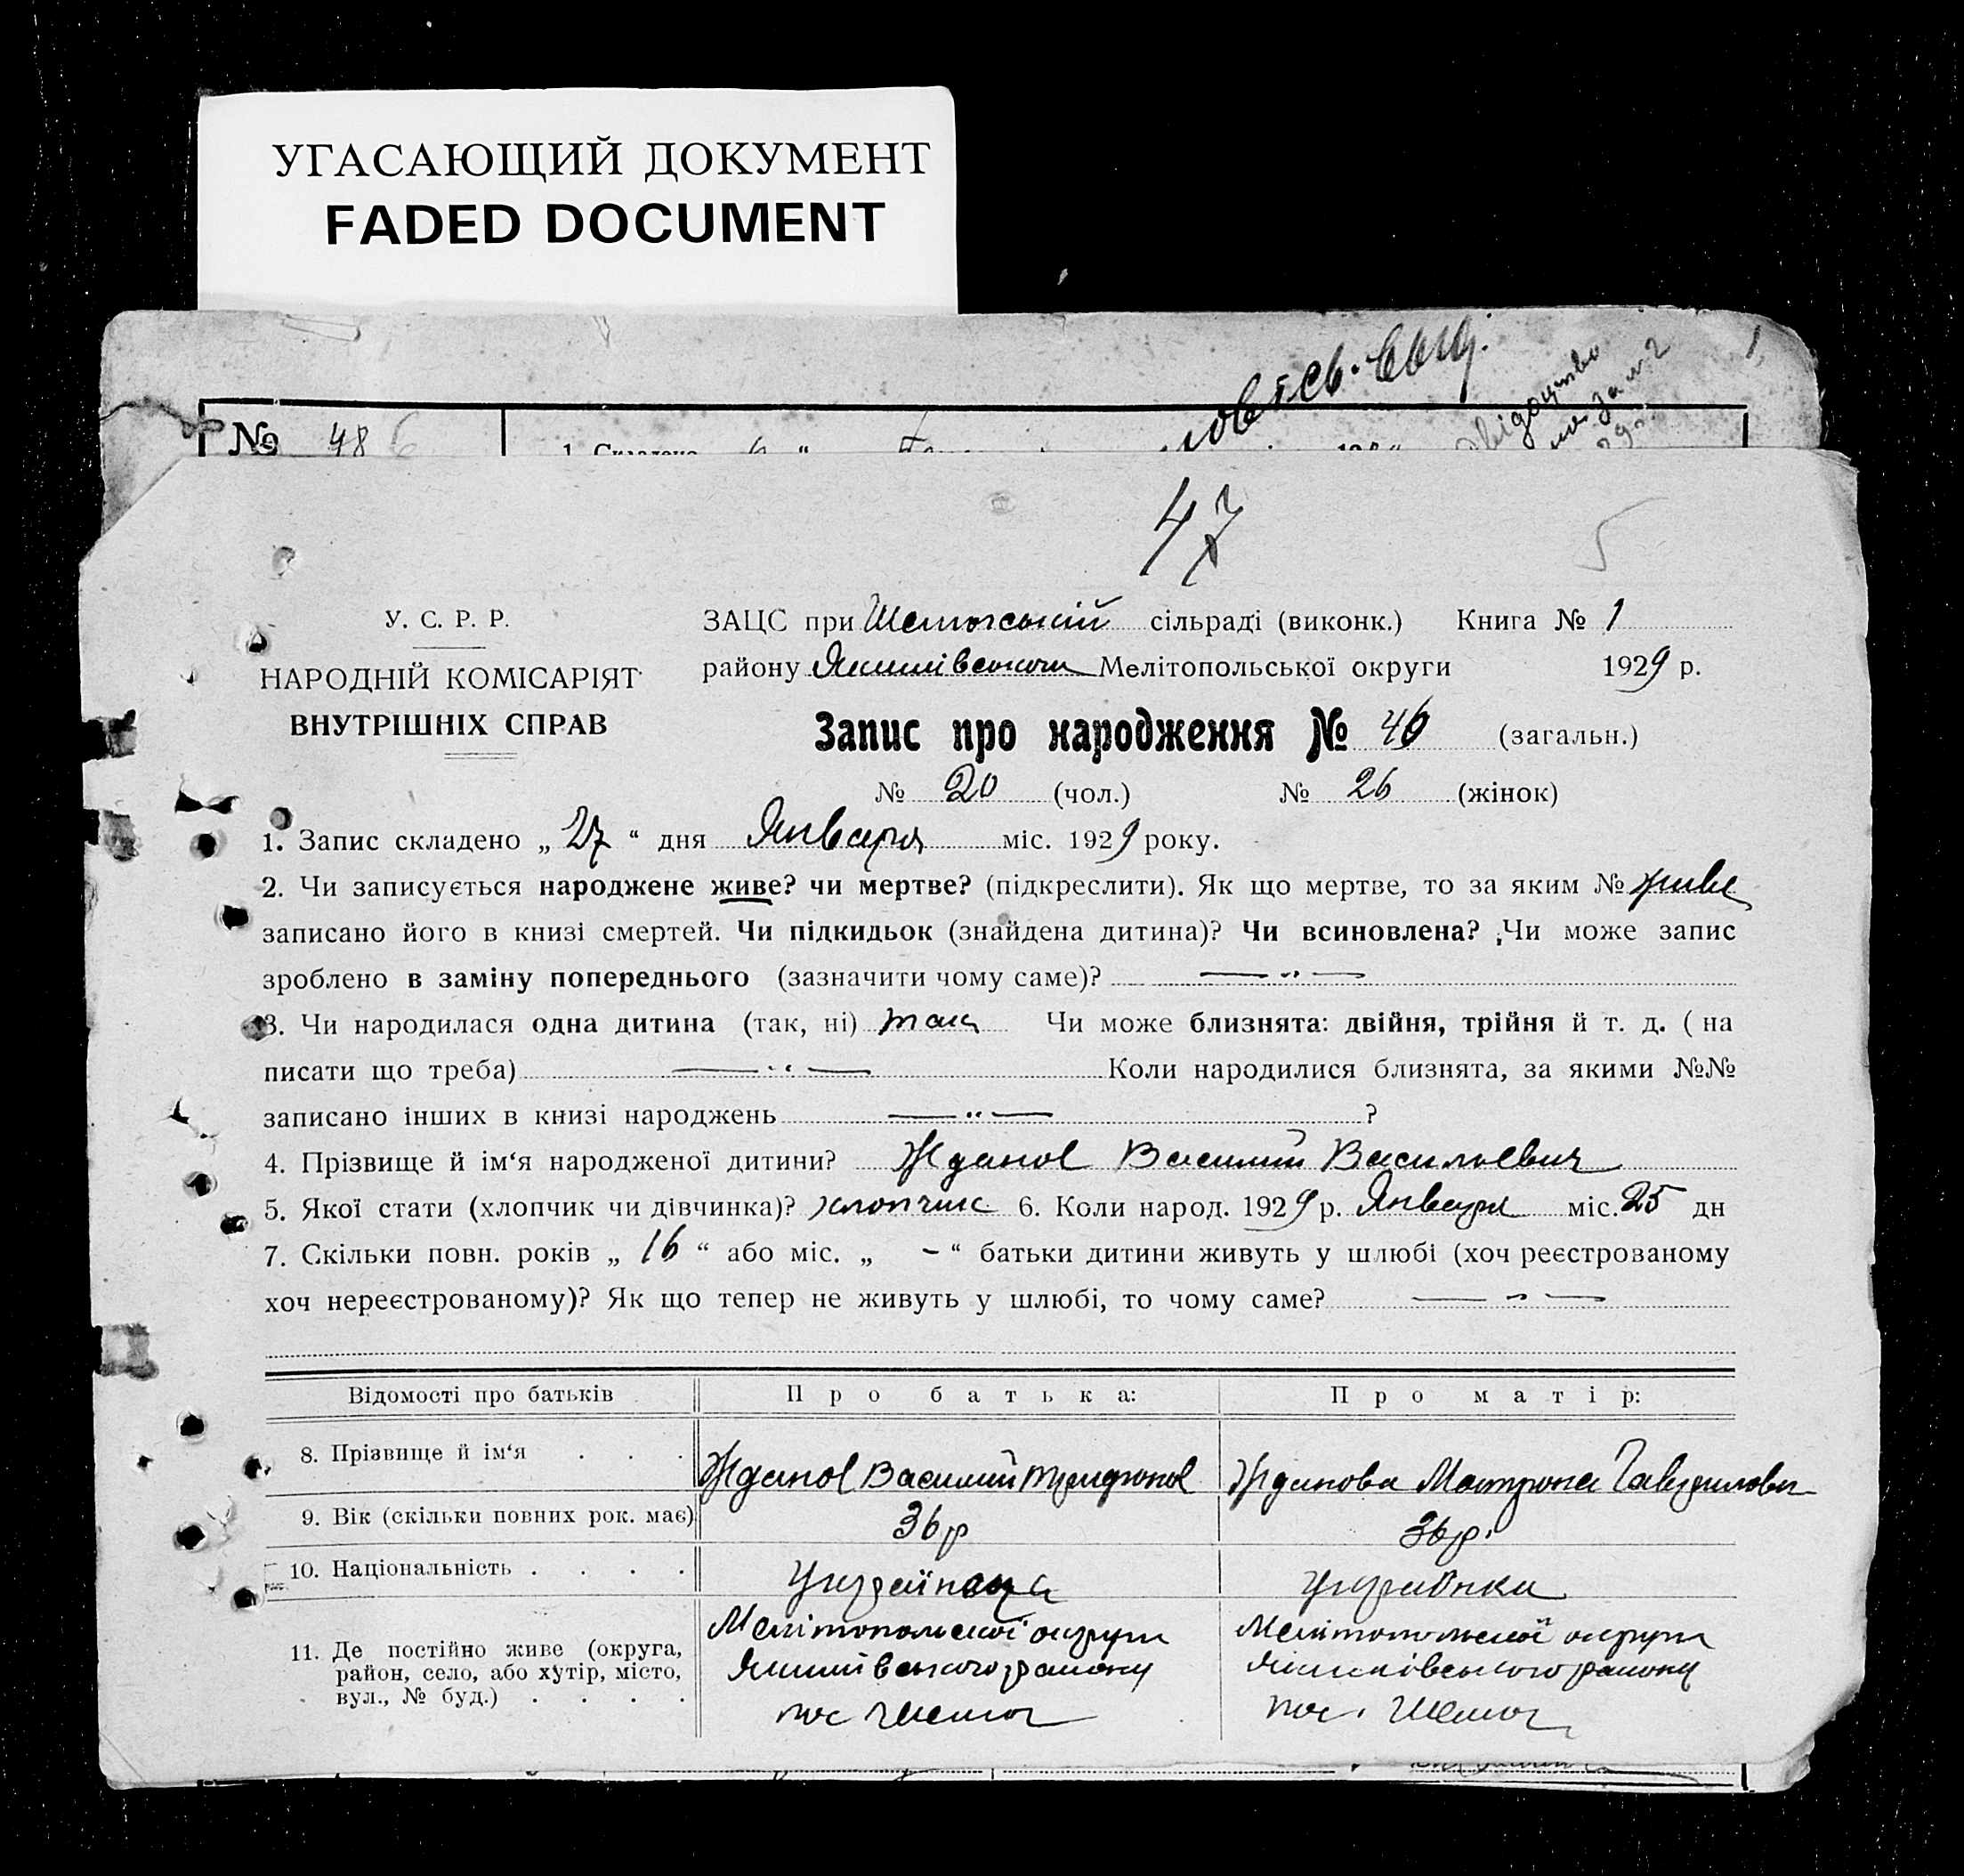 УГАСАЮЩИЙ ДОКУМЕНТ
FADED DOCUMENT
№ 48
47
5
У. С. Р. Р.
НАРОДНІЙ КОМІСАРІЯТ
ВНУТРІШНІХ СПРАВ
ЗАЦС при сільраді (виконк.) Книга № 1
району Якимівського Мелітопольської округи 1929 р.
Запис про народження № 46 (загальн.)
№ 20 (чол.) № 26 (жінок)
1. Запис складено „ 27 “ дня Января міс. 1929 року.
2. Чи записується народжене живе? чи мертве? (підкреслити). Як що мертве, то за яким № живе
записано його в книзі смертей. Чи підкидьок (знайдена дитина)? Чи всиновлена? Чи може запис
зроблено в заміну попереднього (зазначити чому саме)? — „ —
3. Чи народилася одна дитина (так, ні) так Чи може близнята: двійня, трійня й т. д. ( на
писати що треба) — „ — Коли народилися близнята, за якими №№
записано інших в книзі народжень — „ — ?
4. Прізвище й ім‘я народженої дитини? Жданов Василий Васильевич
5. Якої стати (хлопчик чи дівчинка)? хлопчик 6. Коли народ. 1929 р. Января міс. 25 дн
7. Скільки повн. років „ 16 “ або міс. „ - “ батьки дитини живуть у шлюбі (хоч реєстрованому
хоч нереєстрованому)? Як що тепер не живуть у шлюбі, то чому саме? — „ —
Відомості про батьків Про батька: Про матір:
8. Прізвище й ім‘я . . . Жданов Василий Жданова Матрона Гаврилови
9. Вік (скільки повних рок. має) 36 р 36 р.
10. Національність . . . . Українка
11. Де постійно живе (округа,
район, село, або хутір, місто,
вул., № буд.) . . . .
Мелітопольської округи Мелітопольської округи
Якимівського району Якимівського району